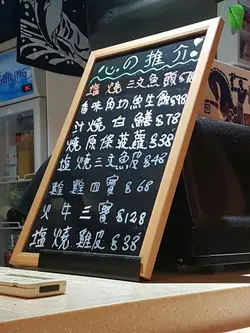 心の推介
塩燒三文魚腩$78
香味魚生飯$98
汁燒白鱔$78
燒原條菠蘿$38
塩燒三文魚皮$48
雞雞四寶$68
火牛三寶$128
塩燒雞皮$38